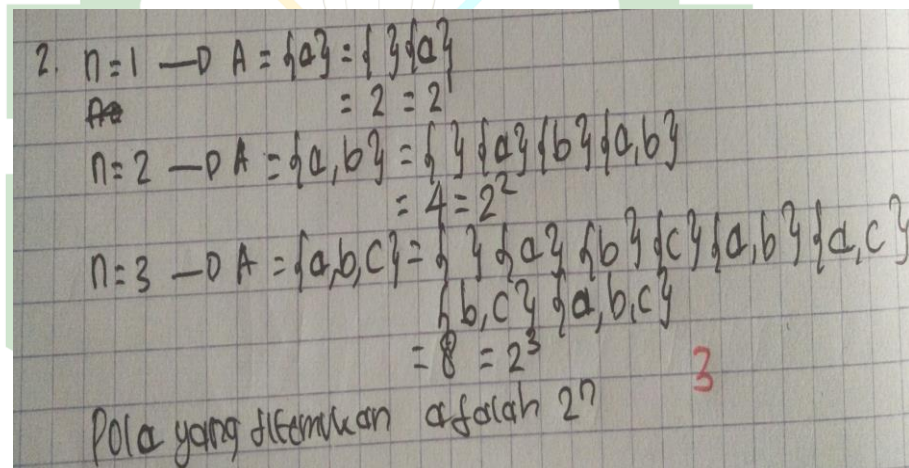 2. n=1 —D A = {a} = { } {a}
= 2 = 2¹
n=2 —D A = {a,b} = { } {a} {b} {a,b}
= 4 = 2²
n=3 —D A = {a,b,c} = { } {a} {b} {c} {a,b} {a,c}
{b,c} {a,b,c}
= 8 = 2³
3
Pola yang ditemukan adalah 2ⁿ